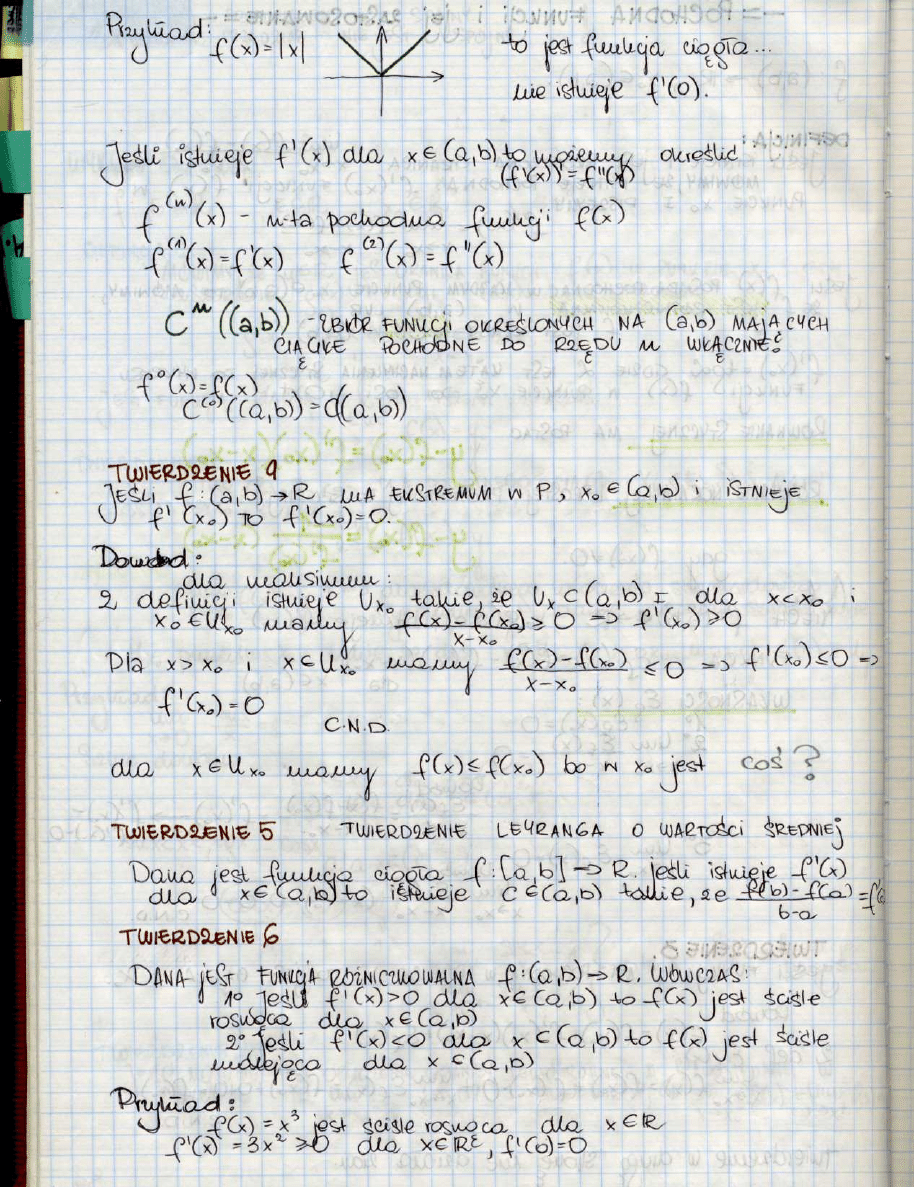 Przykład:
f(x)=|x|
to jest funkcja ciągła...
nie istnieje f'(0).
Jeśli istnieje f'(x) dla x∈(a,b) to możemy określić
(f'(x))'=f''(x)
f⁽ⁿ⁾(x) - n-ta pochodna funkcji f(x)
f⁽¹⁾(x)=f'(x) f⁽²⁾(x)=f''(x)
Cⁿ((a,b)) - ZBIÓR FUNKCJI OKREŚLONYCH NA (a,b) MAJĄCYCH
CIĄGŁE POCHODNE DO RZĘDU n WŁĄCZNIE.
f⁰(x)=f(x)
C⁽⁰⁾((a,b))=C((a,b))
TWIERDZENIE 4
JEŚLI f:(a,b)→R MA EKSTREMUM W P, x₀∈(a,b) i ISTNIEJE
f'(x₀) TO f'(x₀)=0.
Dowód:
dla maksimum:
Z definicji istnieje Ux₀ takie, że Ux⊂(a,b) I dla x<x₀ i
x₀∈Ux₀ mamy f(x)-f(x₀)/x-x₀ ≥0 => f'(x₀)≥0
Dla x>x₀ i x∈Ux₀ mamy f(x)-f(x₀)/x-x₀ ≤0 => f'(x₀)≤0 =>
f'(x₀)=0
C.N.D.
dla x∈Ux₀ mamy f(x)≤f(x₀) bo w x₀ jest coś?
TWIERDZENIE 5 TWIERDZENIE LEYRANGA O WARTOŚCI ŚREDNIEJ
Dana jest funkcja ciągła f:[a,b]→R. jeśli istnieje f'(x)
dla x∈(a,b) to istnieje c∈(a,b) takie, że f(b)-f(a)/b-a =f'(
TWIERDZENIE 6
DANA JEST FUNKCJA RÓŻNICZKOWALNA f:(a,b)→R. WÓWCZAS:
1° Jeśli f'(x)>0 dla x∈(a,b) to f(x) jest ściśle
rosnąca dla x∈(a,b)
2° Jeśli f'(x)<0 dla x∈(a,b) to f(x) jest ściśle
malejąca dla x∈(a,b)
Przykład:
f(x)=x³ jest ściśle rosnąca dla x∈ℝ
f'(x)=3x²≥0 dla x∈ℝ, f'(0)=0